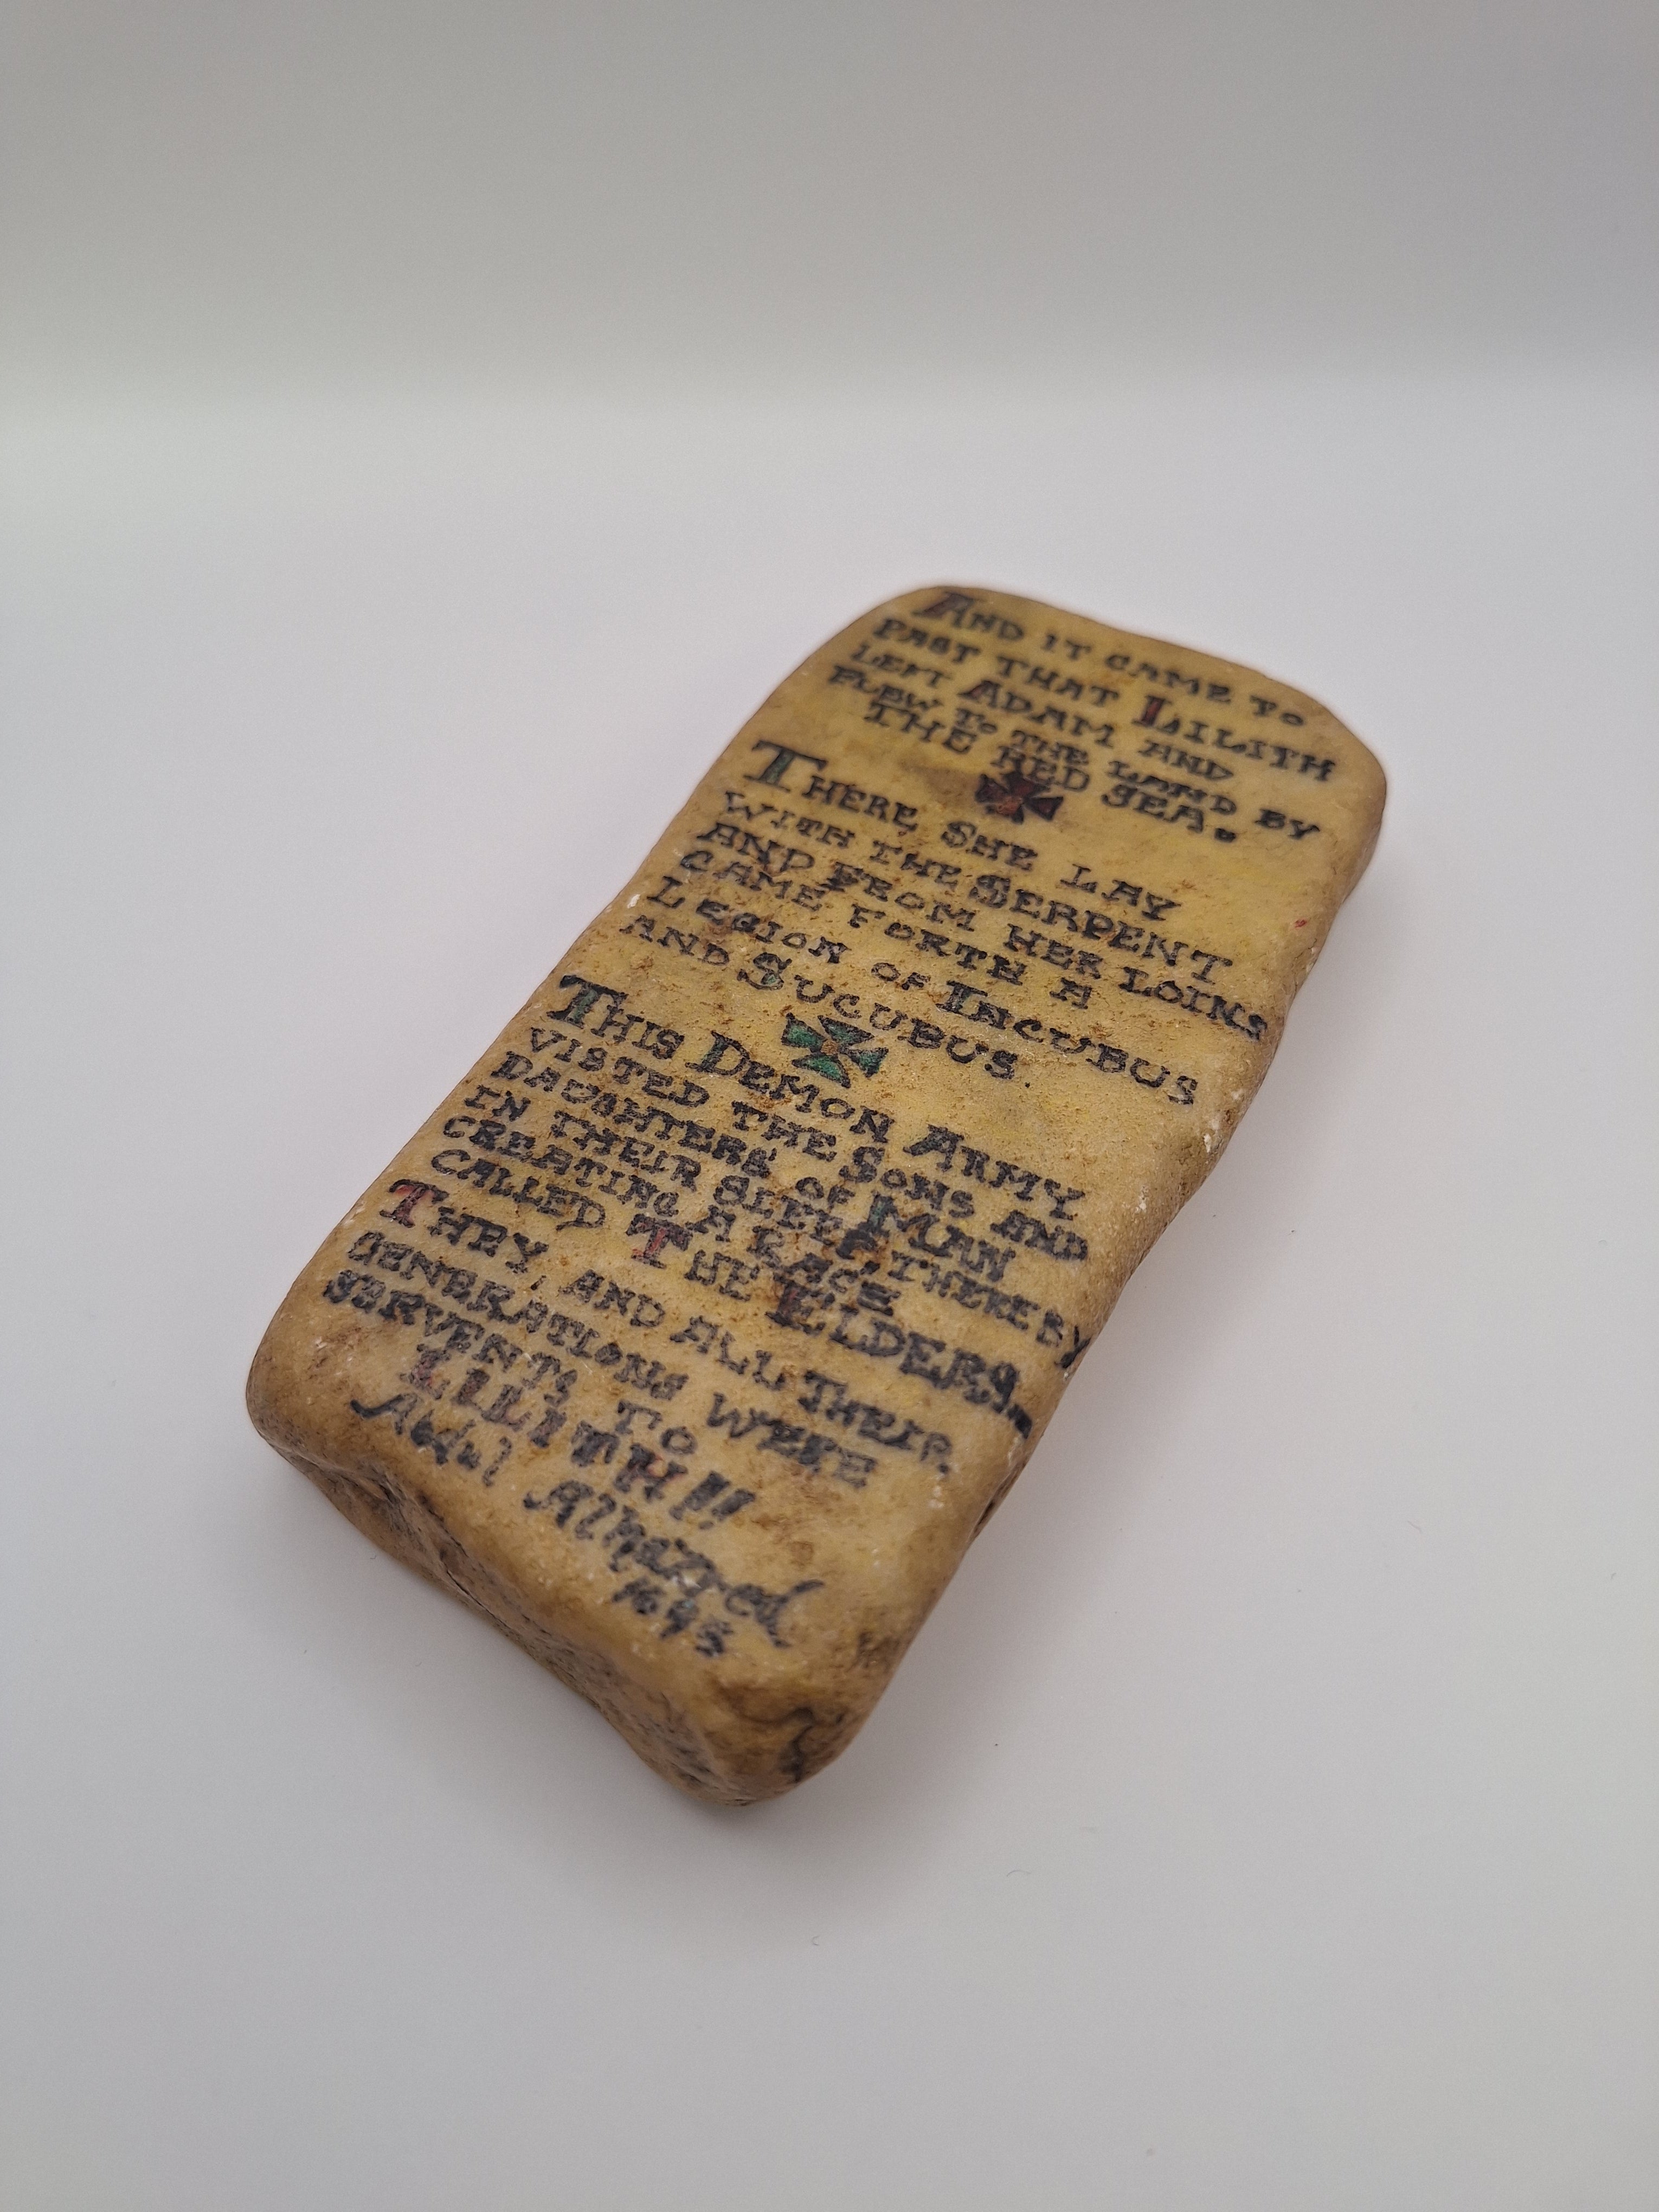 AND IT CAME TO
PAST THAT LILITH
LEFT ADAM AND
FLEW TO THE LAND BY
THE RED SEA.
THERE SHE LAY
WITH THE SERPENT
AND FROM HER LOINS
CAME FORTH A
LEGION OF INCUBUS
AND SUCUBUS.
THIS DEMON ARMY
VISTED THE SONS AND
DAUGHTERS OF MAN
IN THEIR SLEEP, THEREBY
CREATING A RACE
CALLED THE ELDERS.
THEY, AND ALL THEIR
GENERATIONS WERE
SERVENTS TO
LILITH!!
Abdul Alhazred